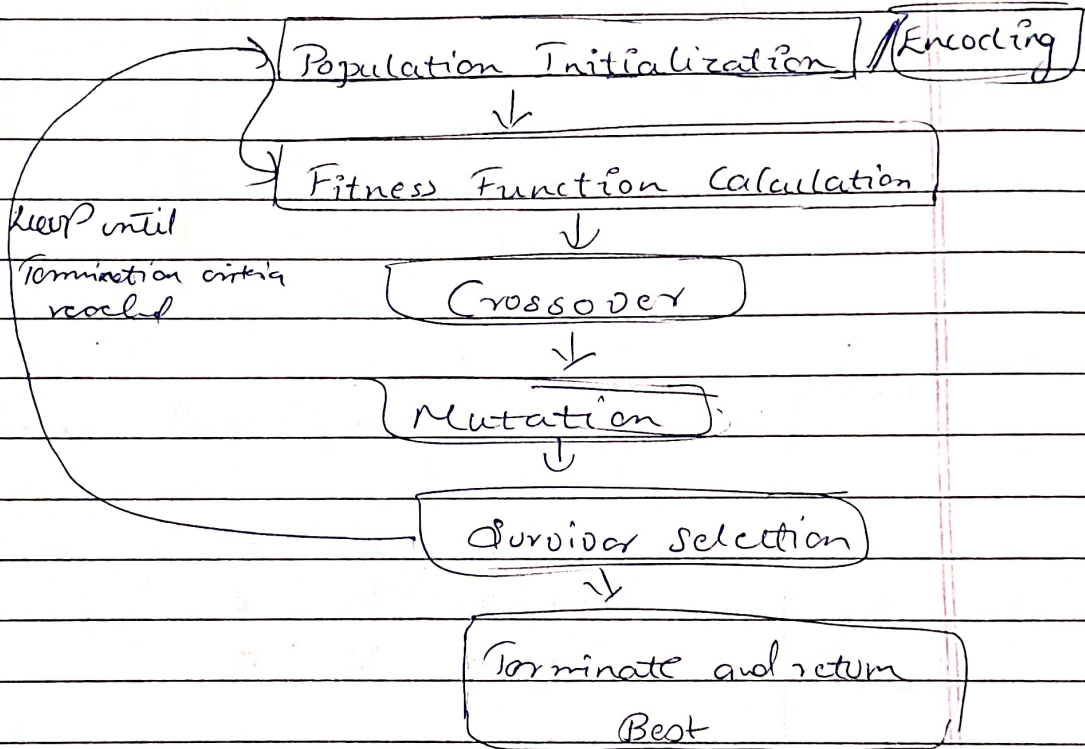 Population Initialization / Encoding
Fitness Function Calculation
Loop until
Termination criteria
reached
Crossover
Mutation
Survivor selection
Terminate and return
Best